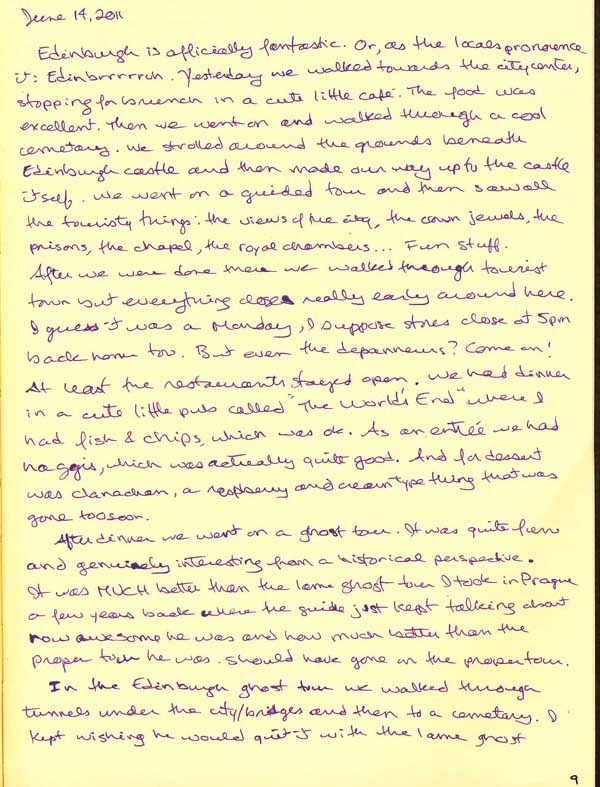 June 14, 2011
Edinburgh is officially fantastic. Or, as the locals pronounce
it: Edinbrrrrrch. Yesterday we walked towards the city center,
stopping for brunch in a cute little café. The food was
excellent. Then we went on and walked through a cool
cemetary. We strolled around the grounds beneath
Edinburgh castle and then made our way up to the castle
itself. We went on a guided tour and then saw all
the touristy things: the views of the city, the crown jewels, the
prisons, the chapel, the royal chambers... Fun stuff.
After we were done there we walked through tourist
town but everything closes really early around here.
I guess it was a Monday, I suppose stores close at 5pm
back home too. But even the depanneurs? Come on!
At least the restaurants stayed open. We had dinner
in a cute little pub called "The World's End" where I
had fish & chips, which was ok. As an entrée we had
haggis, which was actually quite good. And for dessert
was clanachan, a raspberry and cream type thing that was
gone too soon.
After dinner we went on a ghost tour. It was quite fun
and genuinely interesting from a historical perspective.
It was MUCH better than the lame ghost tour I took in Prague
a few years back where the guide just kept talking about
how awesome he was and how much better than the
proper tour he was. Should have gone on the proper tour.
In the Edinburgh ghost tour we walked through
tunnels under the city/bridges and then to a cemetary. I
kept wishing he would quit it with the lame ghost
9